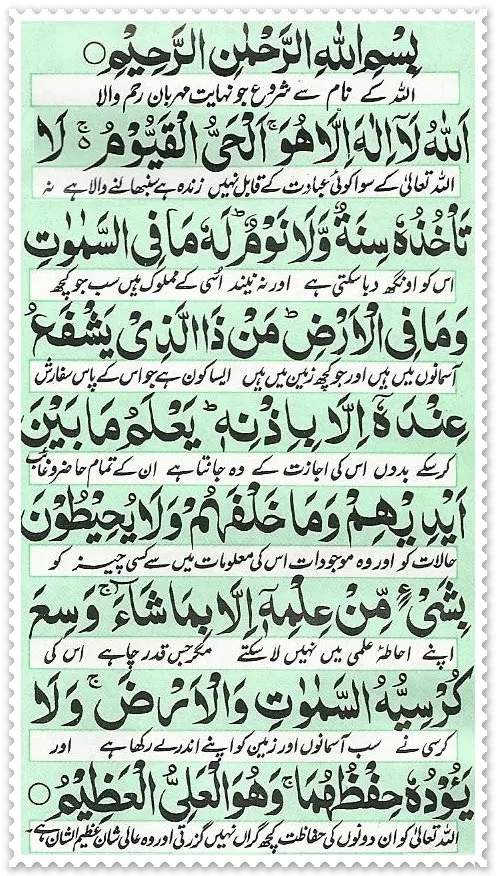 بِسْمِ اللهِ الرَّحْمٰنِ الرَّحِيْمِ ○
اللہ کے نام سے شروع جو نہایت مہربان رحم والا
اَللهُ لَآ اِلٰهَ اِلَّا هُوَ ۚ اَلْحَيُّ الْقَيُّوْمُ ۬ۚ لَا
اللہ تعالیٰ کے سوا کوئی عبادت کے قابل نہیں زندہ ہے سنبھالنے والا ہے نہ
تَاْخُذُهٗ سِنَةٌ وَّلَا نَوْمٌ ؕ لَهٗ مَا فِي السَّمٰوٰتِ
اس کو اونگھ دبا سکتی ہے اور نہ نیند اسی کے مملوک ہیں سب جو کچھ
وَمَا فِي الْاَرْضِ ؕ مَنْ ذَا الَّذِيْ يَشْفَعُ
آسمانوں میں ہیں اور جو کچھ زمین میں ہیں ایسا کون ہے جو اس کے پاس سفارش
عِنْدَهٗٓ اِلَّا بِاِذْنِهٖ ؕ يَعْلَمُ مَا بَيْنَ
کر سکے بدوں اس کی اجازت کے وہ جانتا ہے ان کے تمام حاضر و غائب
اَيْدِيْهِمْ وَمَا خَلْفَهُمْ وَلَا يُحِيْطُوْنَ
حالات کو اور وہ موجودات اس کی معلومات میں سے کسی چیز کو
بِشَيْءٍ مِّنْ عِلْمِهٖٓ اِلَّا بِمَا شَآءَ ۚ وَسِعَ
اپنے احاطۂ علمی میں نہیں لا سکتے مگر جس قدر چاہے اس کی
كُرْسِيُّهُ السَّمٰوٰتِ وَالْاَرْضَ ۚ وَلَا
کرسی نے سب آسمانوں اور زمین کو اپنے اندر لے رکھا ہے اور
يَـُٔوْدُهٗ حِفْظُهُمَا ۚ وَهُوَ الْعَلِيُّ الْعَظِيْمُ ○
اللہ تعالیٰ کو ان دونوں کی حفاظت کچھ گراں نہیں گزرتی اور وہ عالی شان عظیم الشان ہے۔